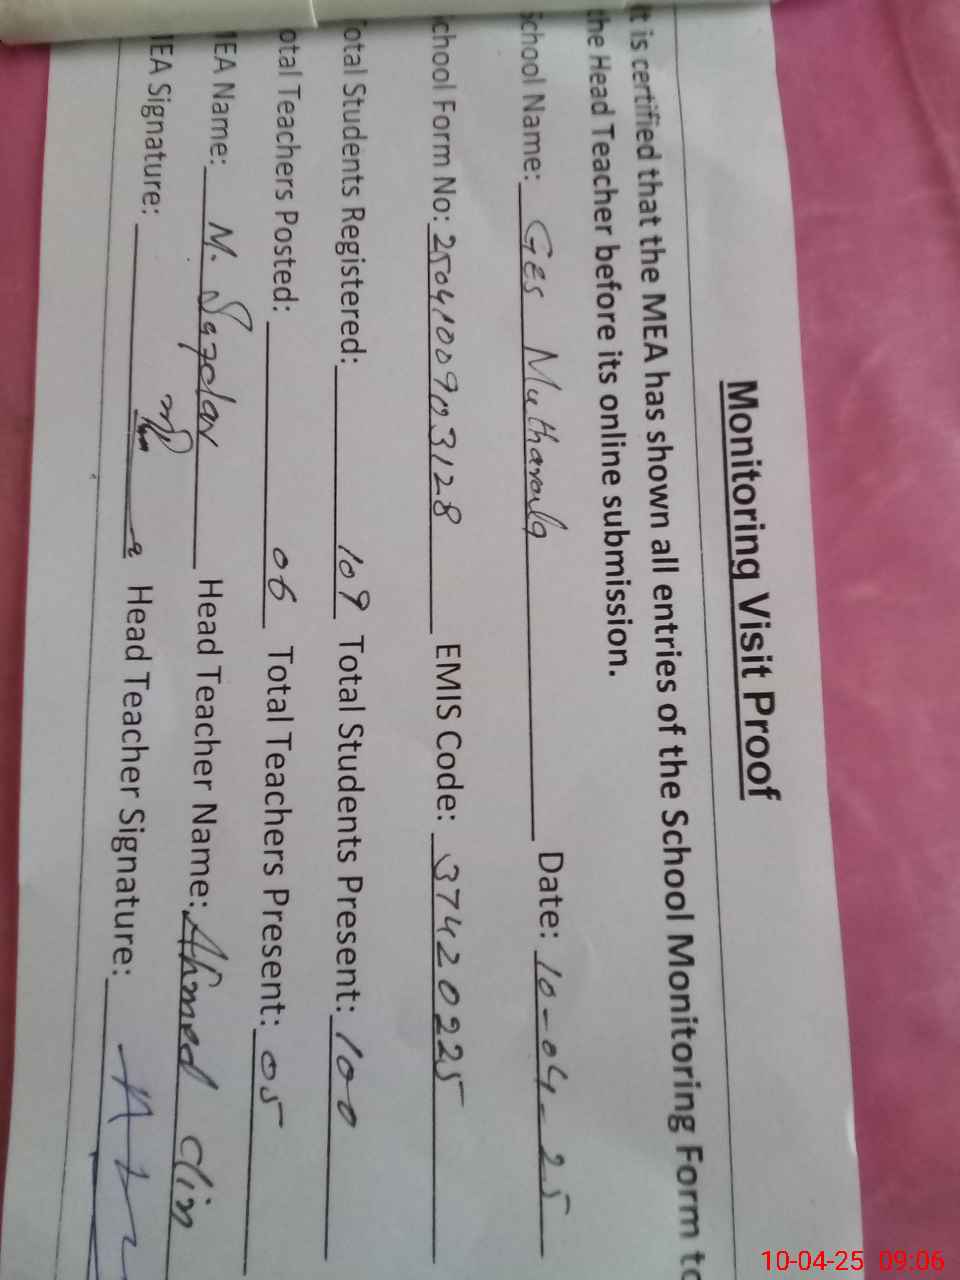 Monitoring Visit Proof
It is certified that the MEA has shown all entries of the School Monitoring Form to
the Head Teacher before its online submission.
School Name: Ges Date: 10-04-25
School Form No: EMIS Code: 37420225
Total Students Registered: 109 Total Students Present: 100
Total Teachers Posted: 06 Total Teachers Present: 05
MEA Name: M. Head Teacher Name: Ahmed
MEA Signature: Head Teacher Signature:
10-04-25 09:06